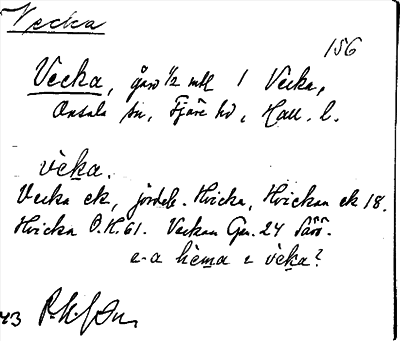 Vecka
156
Vecka, gård 1/2 mtl 1 Vecka,
Onsala sn, Fjäre hd, Hall. l.
vèka.
Vecka ek, jordeb. Hvicka, Hvickan ek 18.
Hvicka O.H. 61. Veckan Gen. 24 Särö.
e-a hema e vèka?
43